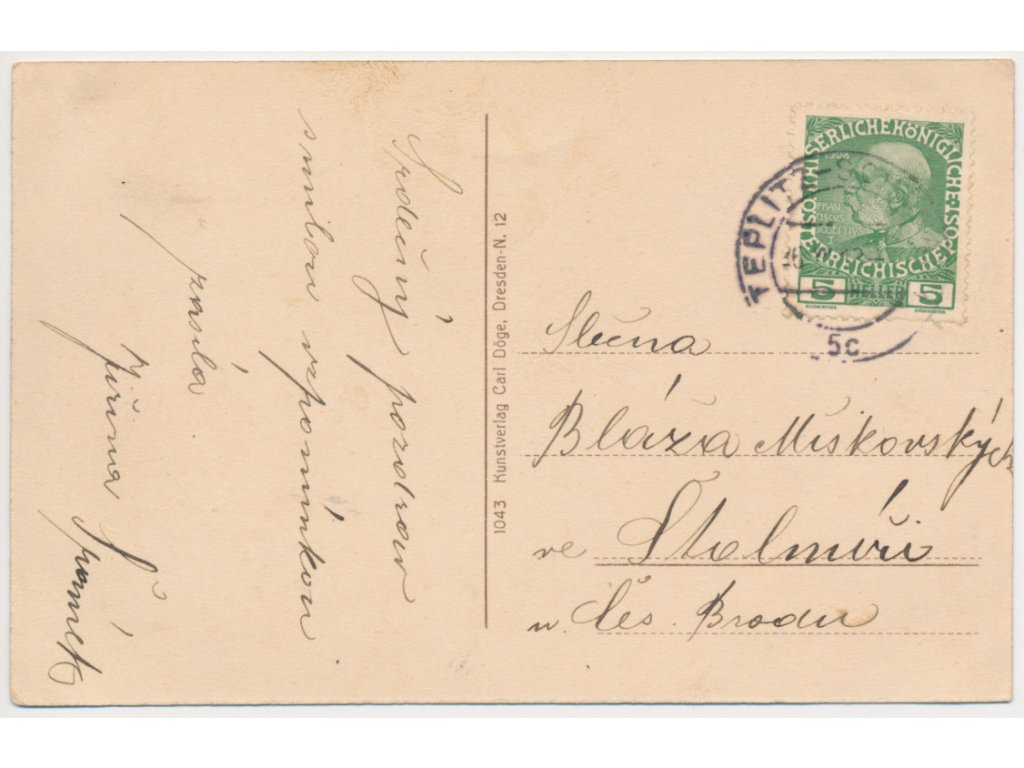 Srdečný pozdrav
smilou vzpomínkou
zasílá
Jiřina
1043 Kunstverlag Carl Döge, Dresden-N. 12
KAISERLICHE KÖNIGLICHE
ÖSTERREICHISCHE POST
1908
FRAN
CISCVS
IOSEPHVS
I
5 HELLER 5
TEPLITZ-SCH
5c
Slečna
Bláža Miškovských
ve Štolmíři
u Čes. Brodu